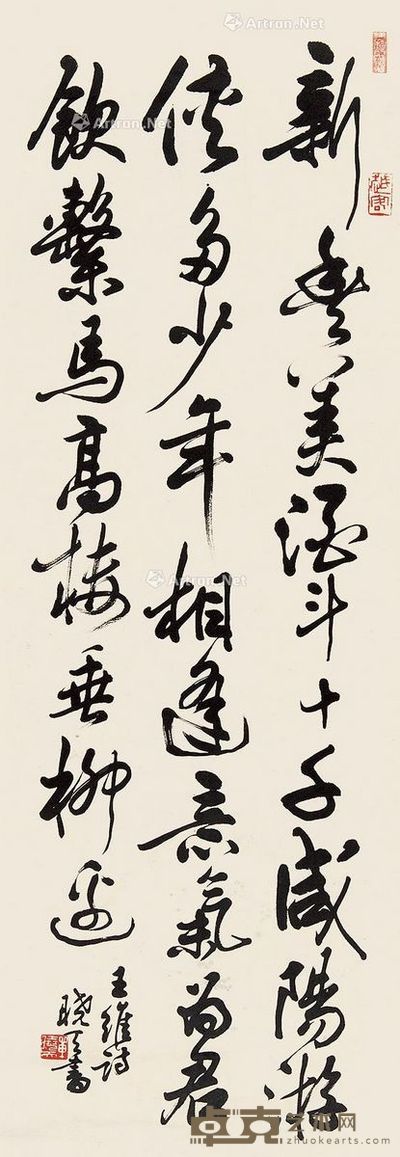 新豐美酒斗十千咸陽游
俠多少年相逢意氣為君
飲繫馬高楼垂柳边
王維詩
晓天書
Artron.Net
Artron.Net
Artron.Net
Artron.Net
卓克艺术网
zhuokearts.com